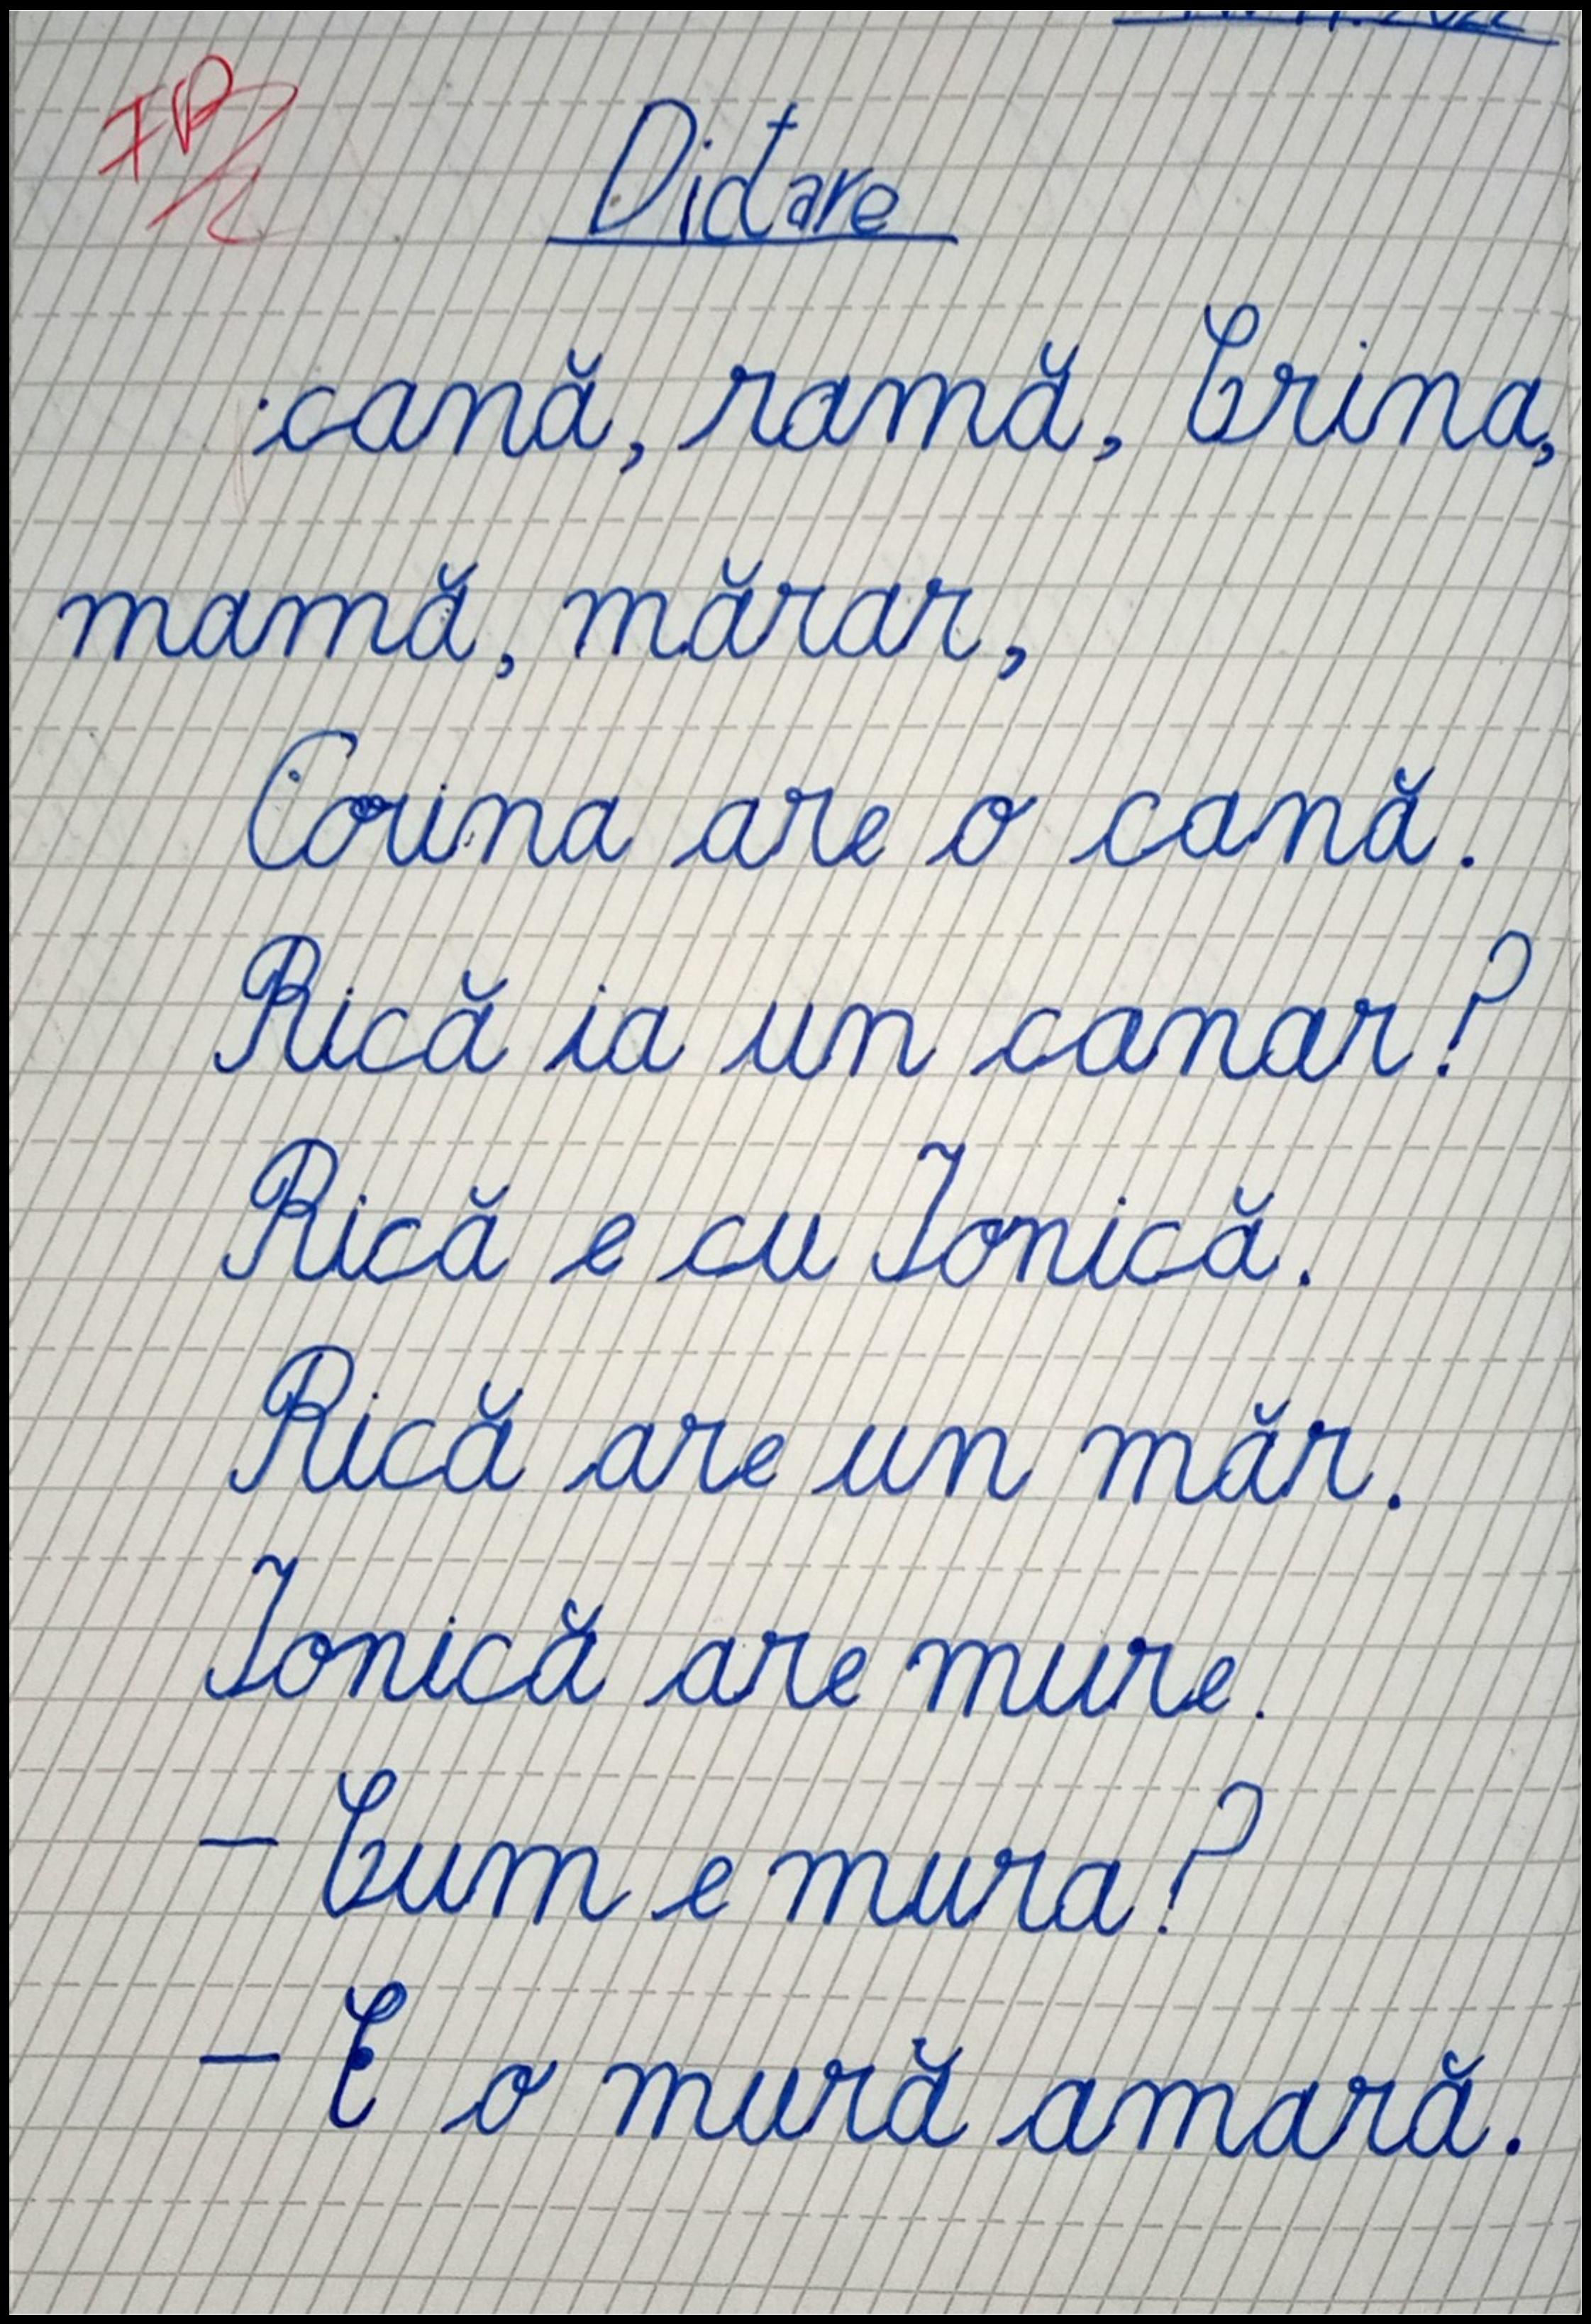 FB
Dictare
cană, ramă, Crina,
mamă, mărar,
Corina are o cană.
Rică ia un canar?
Rică e cu Ionică.
Rică are un măr.
Ionică are mure.
– Cum e mura?
– E o mură amară.